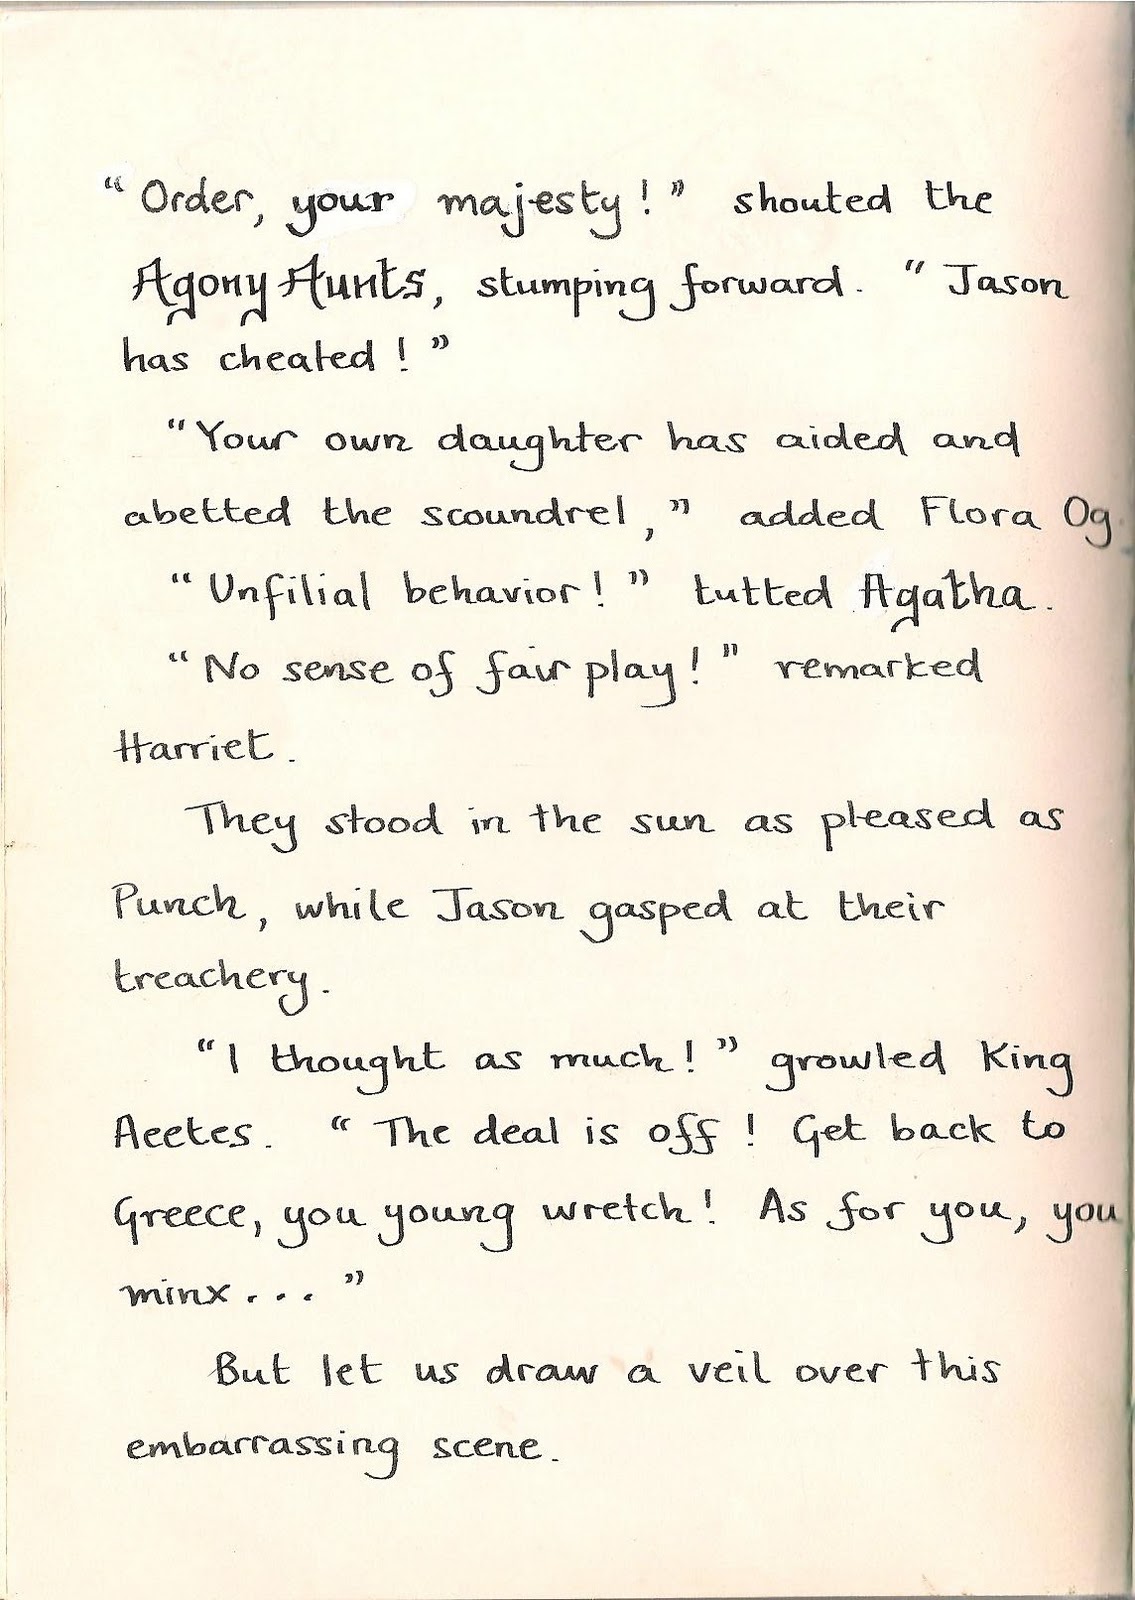 “Order, your majesty!” shouted the
Agony Aunts, stumping forward. “Jason
has cheated!”
“Your own daughter has aided and
abetted the scoundrel,” added Flora Og.
“Unfilial behavior!” tutted Agatha.
“No sense of fair play!” remarked
Harriet.
They stood in the sun as pleased as
Punch, while Jason gasped at their
treachery.
“I thought as much!” growled King
Aeetes. “The deal is off! Get back to
Greece, you young wretch! As for you, you
minx...”
But let us draw a veil over this
embarrassing scene.